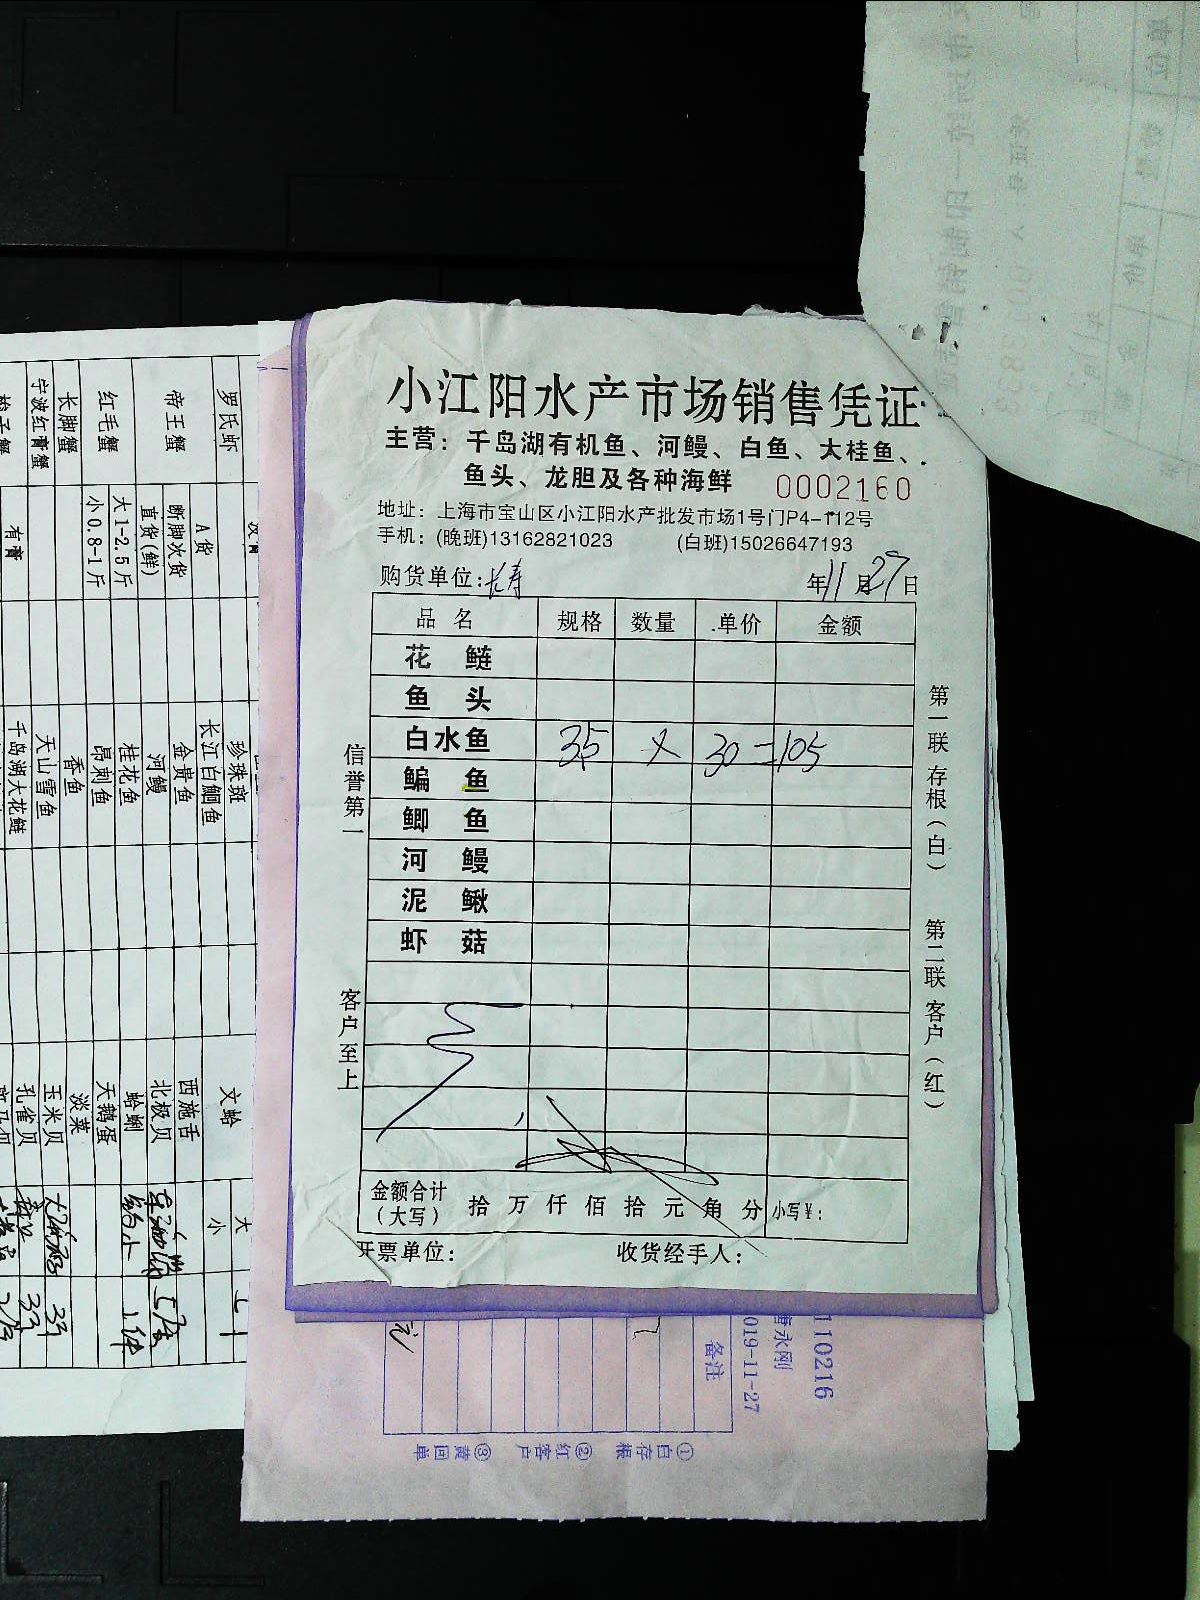 小江阳水产市场销售凭证
主营：千岛湖有机鱼、河鳗、白鱼、大桂鱼、
鱼头、龙胆及各种海鲜 0002160
地址：上海市宝山区小江阳水产批发市场1号门P4-112号
手机：(晚班)13162821023 (白班)15026647193
购货单位：长寿 年11月27日
品名 规格 数量 单价 金额
花鲢
鱼头
白水鱼 35 × 30 = 105
鳊鱼
鲫鱼
河鳗
泥鳅
虾菇
金额合计
（大写） 拾万仟佰拾元角分 小写¥：
开票单位： 收货经手人：
信誉第一
客户至上
第一联 存根（白）
第二联 客户（红）
罗氏虾
帝王蟹
红毛蟹
长脚蟹
宁波红膏蟹
A货
断脚次货
直货(鲜)
大1-2.5斤
小0.8-1斤
有膏
珍珠斑
长江白鮰鱼
金贵鱼
河鳗
桂花鱼
昂刺鱼
香鱼
天山雪鱼
千岛湖大花鲢
文蛤
西施舌
北极贝
蛤蜊
天鹅蛋
淡菜
玉米贝
孔雀贝
大
小
110216
唐永刚
019-11-27
备注
①白存根 ②红客户 ③黄回单